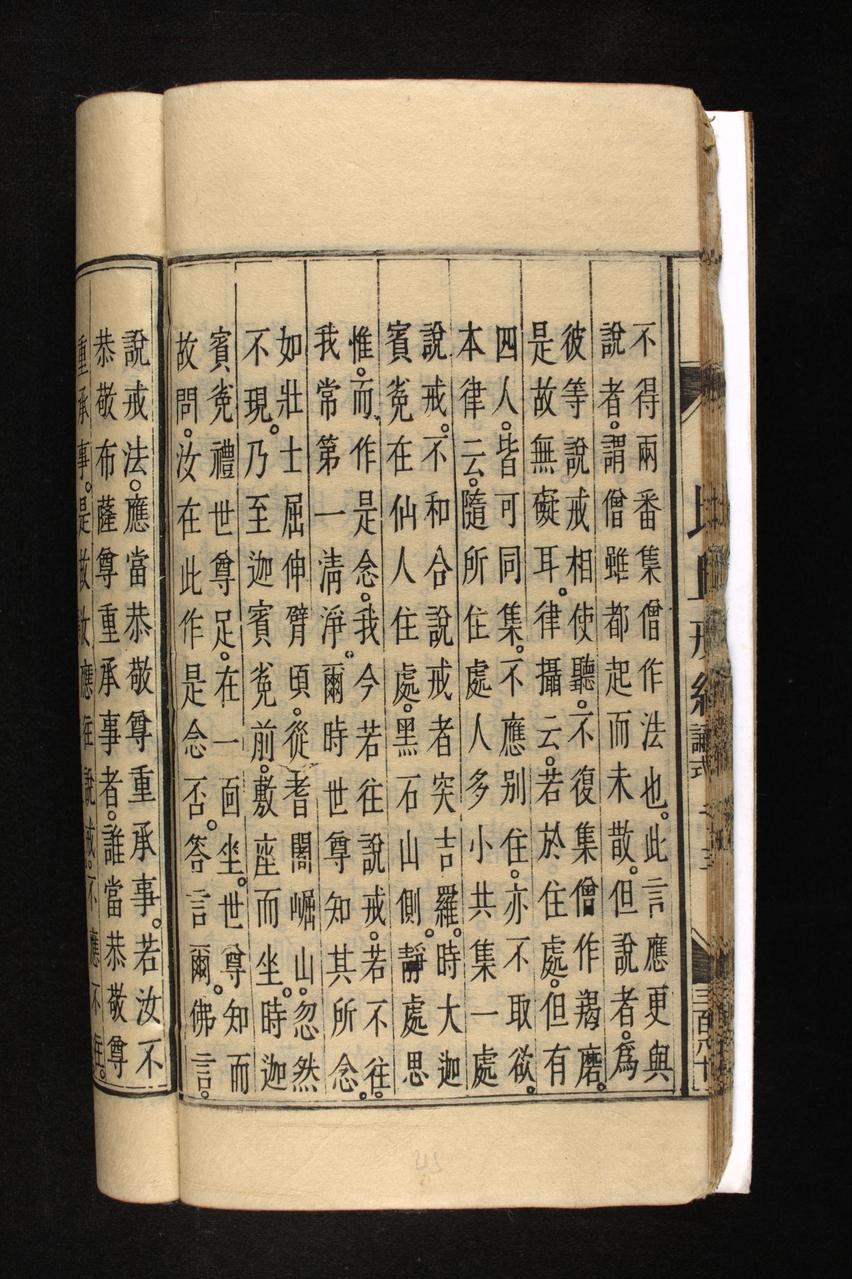 三百八十
不得兩番集僧作法也。此言應更與
說者。謂僧雖都起而未散。但說者。爲
彼等說戒相使聽。不復集僧作羯磨。
是故無礙耳。律攝云。若於住處。但有
四人。皆可同集。不應别住。亦不取欲。
本律云。隨所住處人多小共集一處
說戒。不和合說戒者突吉羅。時大迦
賓㝹在仙人住處。黑石山側。靜處思
惟。而作是念。我今若往說戒。若不往。
我常第一清淨。爾時世尊知其所念。
如壯士屈伸臂頃。從耆闍崛山。忽然
不現。乃至迦賓㝹前。敷座而坐。時迦
賓㝹禮世尊足。在一面坐。世尊知而
故問。汝在此作是念否。答言爾。佛言。
說戒法。應當恭敬尊重承事。若汝不
恭敬布薩尊重承事者。誰當恭敬尊
重承事。是故汝應往說戒。不應不往。